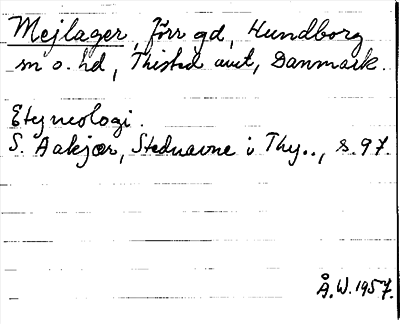 Mejlager, förr gd, Hundborg
sn o. hd, Thisted amt, Danmark.
Etymologi.
S. Aakjær, Stednavne i Thy.., s. 97.
Å.W. 1957.